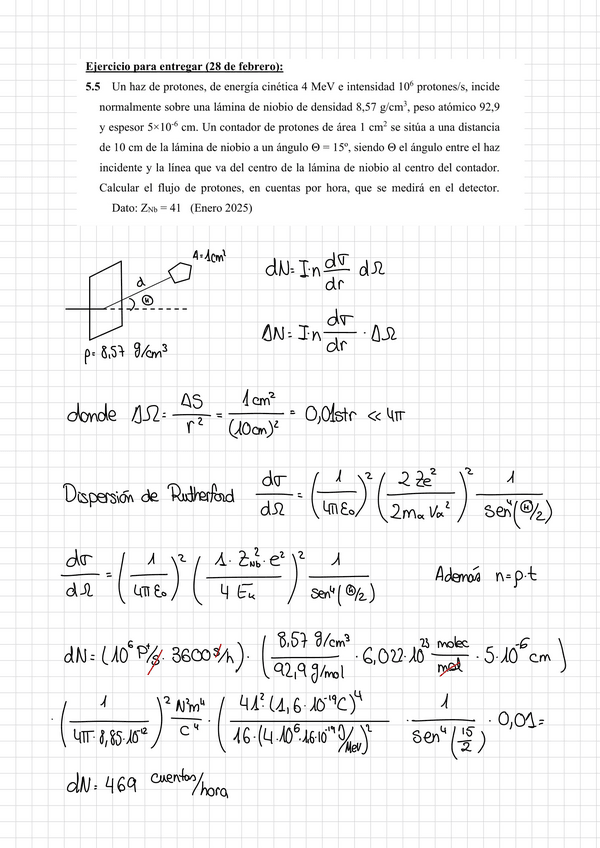 Ejercicio para entregar (28 de febrero):
5.5 Un haz de protones, de energía cinética 4 MeV e intensidad 10⁶ protones/s, incide
normalmente sobre una lámina de niobio de densidad 8,57 g/cm³, peso atómico 92,9
y espesor 5×10⁻⁶ cm. Un contador de protones de área 1 cm² se sitúa a una distancia
de 10 cm de la lámina de niobio a un ángulo Θ = 15º, siendo Θ el ángulo entre el haz
incidente y la línea que va del centro de la lámina de niobio al centro del contador.
Calcular el flujo de protones, en cuentas por hora, que se medirá en el detector.
Dato: Z_Nb = 41 (Enero 2025)
A=1cm²
d
Θ
ρ= 8,57 g/cm³
dN= I·n dσ/dr dΩ
ΔN= I·n dσ/dr · ΔΩ
donde ΔΩ= ΔS/r² = 1cm²/(10cm)² = 0,01str << 4π
Dispersión de Rutherford dσ/dΩ = (1/4πε₀)² (2Ze²/2mαVα²)² 1/sen⁴(Θ/2)
dσ/dΩ = (1/4πε₀)² (1·Z_Nb²·e²/4 Eₖ)² 1/sen⁴(Θ/2) Además n=ρ·t
dN= (10⁶ P⁺/s · 3600 s/h) · (8,57 g/cm³/92,9 g/mol · 6,022·10²³ molec/mol · 5·10⁻⁶ cm)
· (1/4π·8,85·10⁻¹²)² N²m⁴/C⁴ · (41²·(1,6·10⁻¹⁹C)⁴/16·(4·10⁶·1,6·10⁻¹⁹ J/MeV)²) · 1/sen⁴(15/2) · 0,01=
dN= 469 cuentas/hora